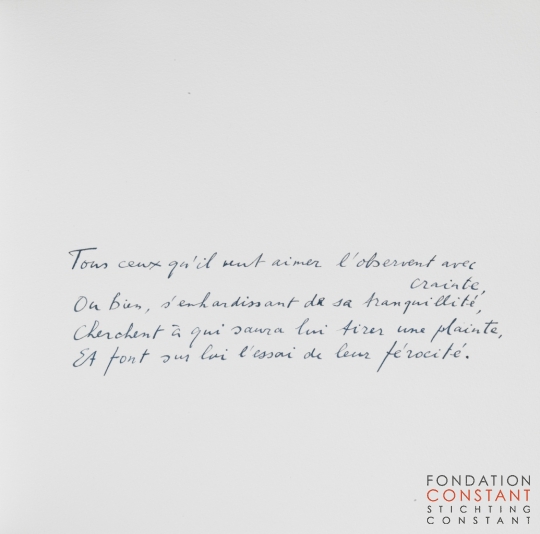 Tous ceux qu'il veut aimer l'observent avec
crainte,
Ou bien, s'enhardissant de sa tranquillité,
Cherchent à qui saura lui tirer une plainte,
Et font sur lui l'essai de leur férocité.
FONDATION
CONSTANT
STICHTING
CONSTANT